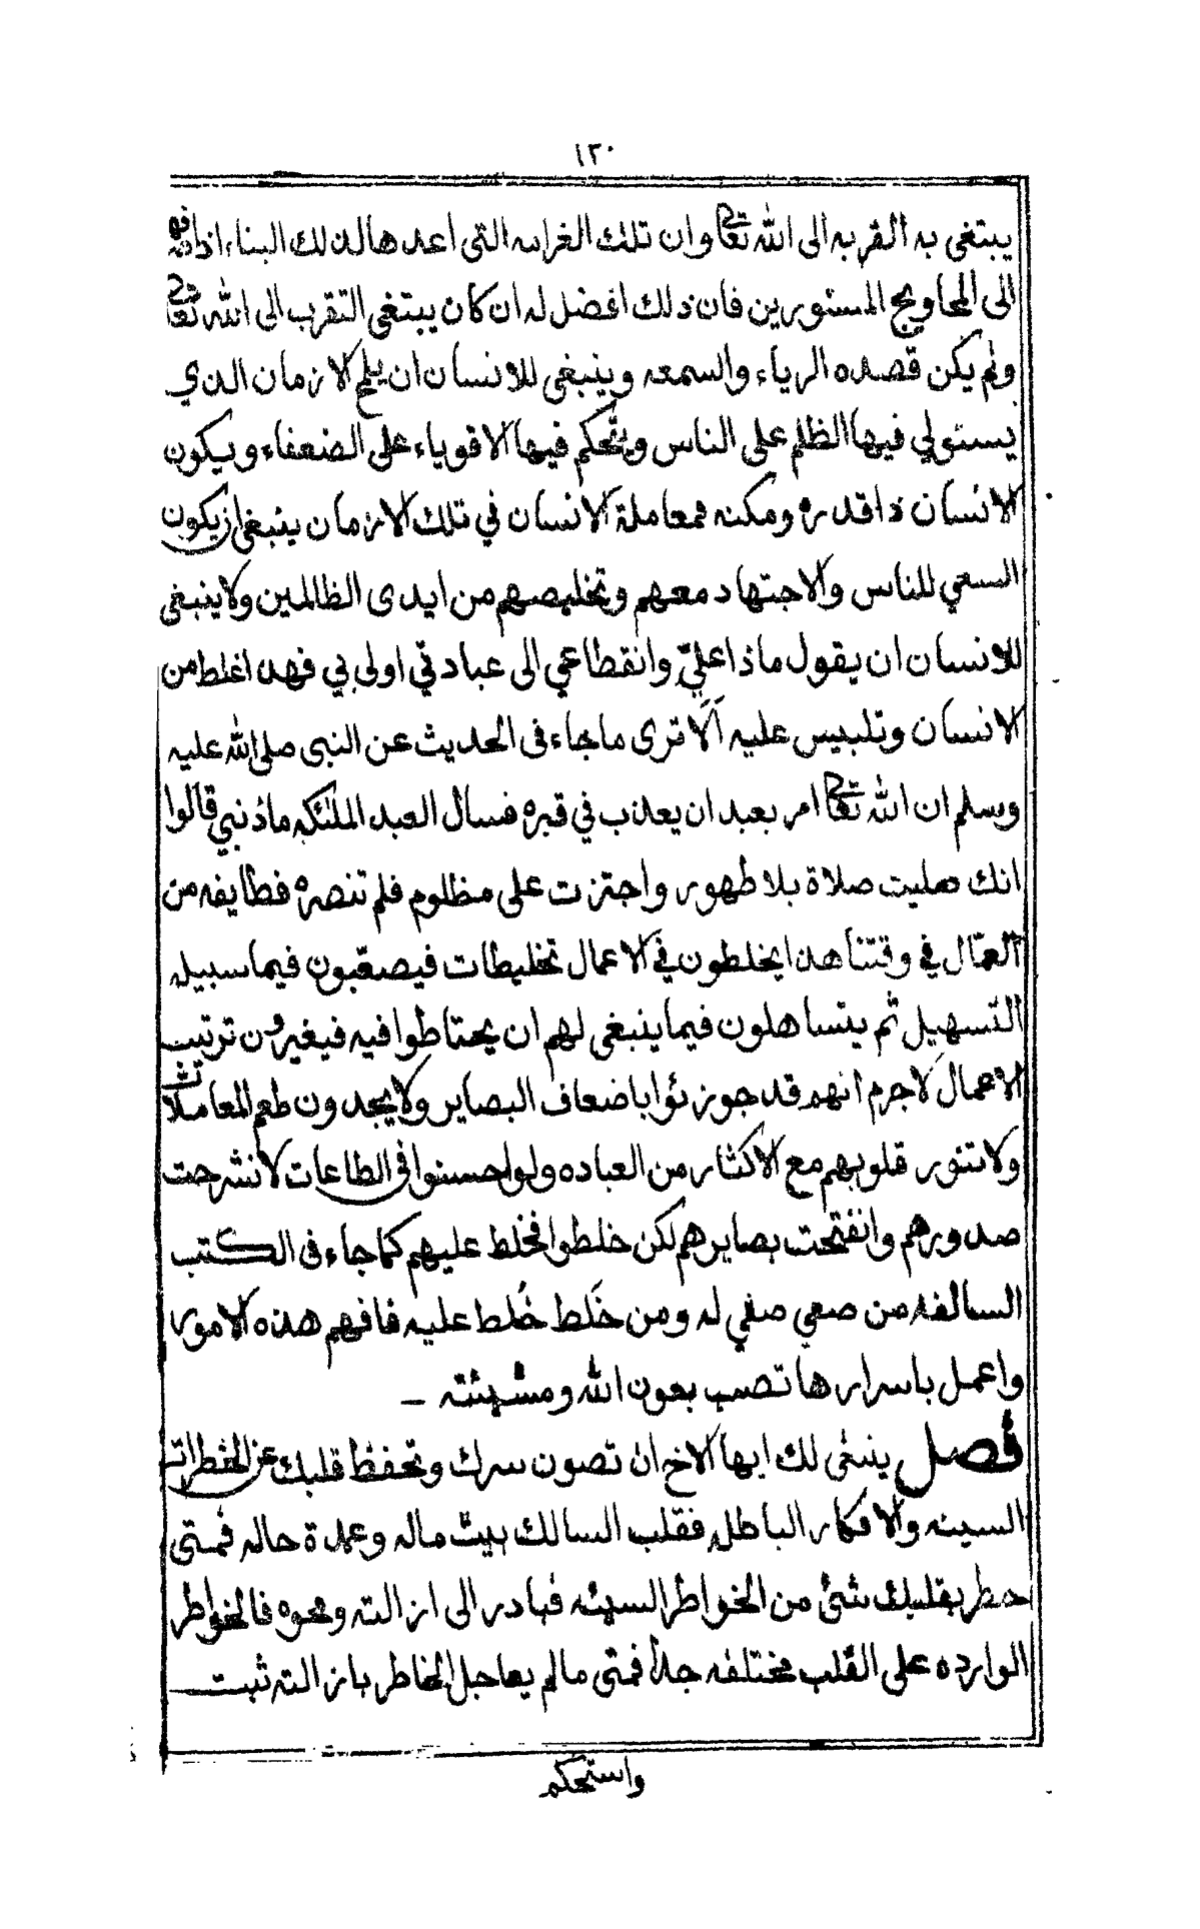 ١٣٠
يبتغي به القربه الى الله تعالى وان تلك الغرامه التى اعدها لذلك البناء اذا دفعها
الى المحاويج المستورين فان ذلك افضل له ان كان يبتغي التقرب الى الله تعالى
ولم يكن قصده الرياء والسمعه وينبغي للانسان ان يلمح الازمان الذي
يستولي فيها الظلم على الناس ويتحكم فيها الاقوياء على الضعفاء ويكون
الانسان ذا قدره ومكنه فمعاملة الانسان في تلك الازمان ينبغي ان يكون
السعي للناس والاجتهاد معهم وتخليصهم من ايدى الظالمين ولا ينبغي
للانسان ان يقول ماذا عليّ وانقطاعي الى عبادتي اولى بي فهذا غلط من
الانسان وتلبيس عليه ألا ترى ما جاء فى الحديث عن النبى صلى الله عليه
وسلم ان الله تعالى امر بعبد ان يعذب في قبره فسال العبد الملئكه ما ذنبي قالوا
انك صليت صلاة بلا طهور واجتزت على مظلوم فلم تنصره فطايفه من
العمّال في وقتنا هذا يخلطون في الاعمال تخليطات فيصعّبون فيما سبيله
التسهيل ثم يتساهلون فيما ينبغي لهم ان يحتاطوا فيه فيغيرون ترتيب
الاعمال لاجرم انهم قد جوزوا باضعاف البصاير ولا يجدون طعم المعاملات
ولا تتنور قلوبهم مع الاكثار من العباده ولو احسنوا فى الطاعات لانشرحت
صدورهم وانفتحت بصايرهم لكن خلطوا فخلط عليهم كما جاء فى الكتب
السالفه من صفي صفي له ومن خَلط خُلط عليه فافهم هذه الامور
واعمل باسرارها تصب بعون الله ومشيئته
فصل ينبغى لك ايها الاخ ان تصون سرك وتحفظ قلبك عن الخطرات
السيئه والافكار الباطله فقلب السالك بيت ماله وعمدة حاله فمتى
خطر بقلبك شئ من الخواطر السيئه فبادر الى ازالته ومحوه فالخواطر
الوارده على القلب مختلفه جدا فمتى ما لم يعاجل الخاطر بازالته ثبت
واستحكم